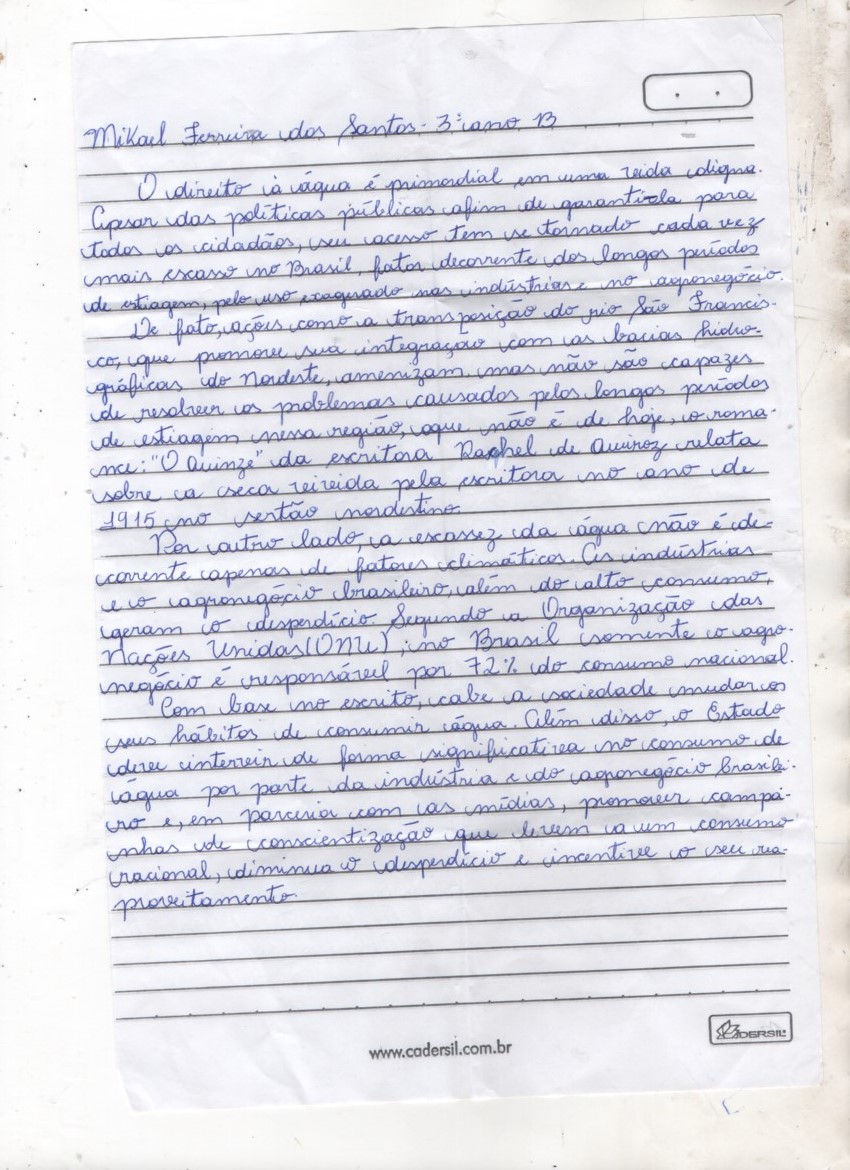 Mikael Ferreira dos Santos - 3º ano B
O direito à água é primordial em uma vida digna.
Apesar das políticas públicas afim de garanti-la para
todos os cidadãos, seu acesso tem se tornado cada vez
mais escasso no Brasil, fator decorrente dos longos períodos
de estiagem, pelo uso exagerado nas indústrias e no agronegócio.
De fato, ações como a transposição do rio São Francis-
co, que promove sua integração com as bacias hidro-
gráficas do Nordeste, amenizam, mas não são capazes
de resolver os problemas causados pelos longos períodos
de estiagem nessa região, oque não é de hoje, o roma-
nce: "O Quinze" da escritora Rachel de Queiroz relata
sobre a seca vivida pela escritora no ano de
1915, no sertão nordestino.
Por outro lado, a escassez da água não é de-
corrente apenas de fatores climáticos. As indústrias
e o agronegócio brasileiro, além do alto consumo,
geram o desperdício. Segundo a Organização das
Nações Unidas (ONU), no Brasil somente o agro-
negócio é responsável por 72% do consumo nacional.
Com base no escrito, cabe a sociedade mudar os
seus hábitos de consumir água. Além disso, o Estado
deve intervir de forma significativa no consumo de
água por parte da indústria e do agronegócio brasilei-
ro e, em parceria com as mídias, promover campa-
nhas de conscientização que levem a um consumo
racional, diminua o desperdício e incentive o seu rea-
proveitamento.
CADERSIL
www.cadersil.com.br